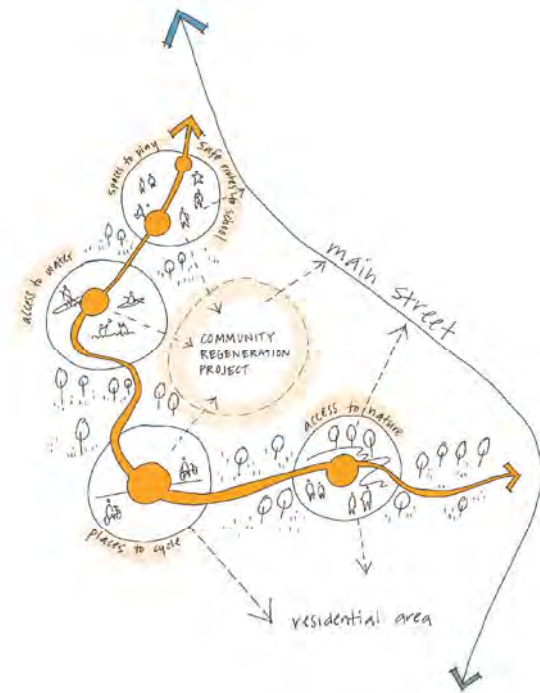 spaces to play
safe routes to school
access to water
main street
COMMUNITY
REGENERATION
PROJECT
access to nature
places to cycle
residential area